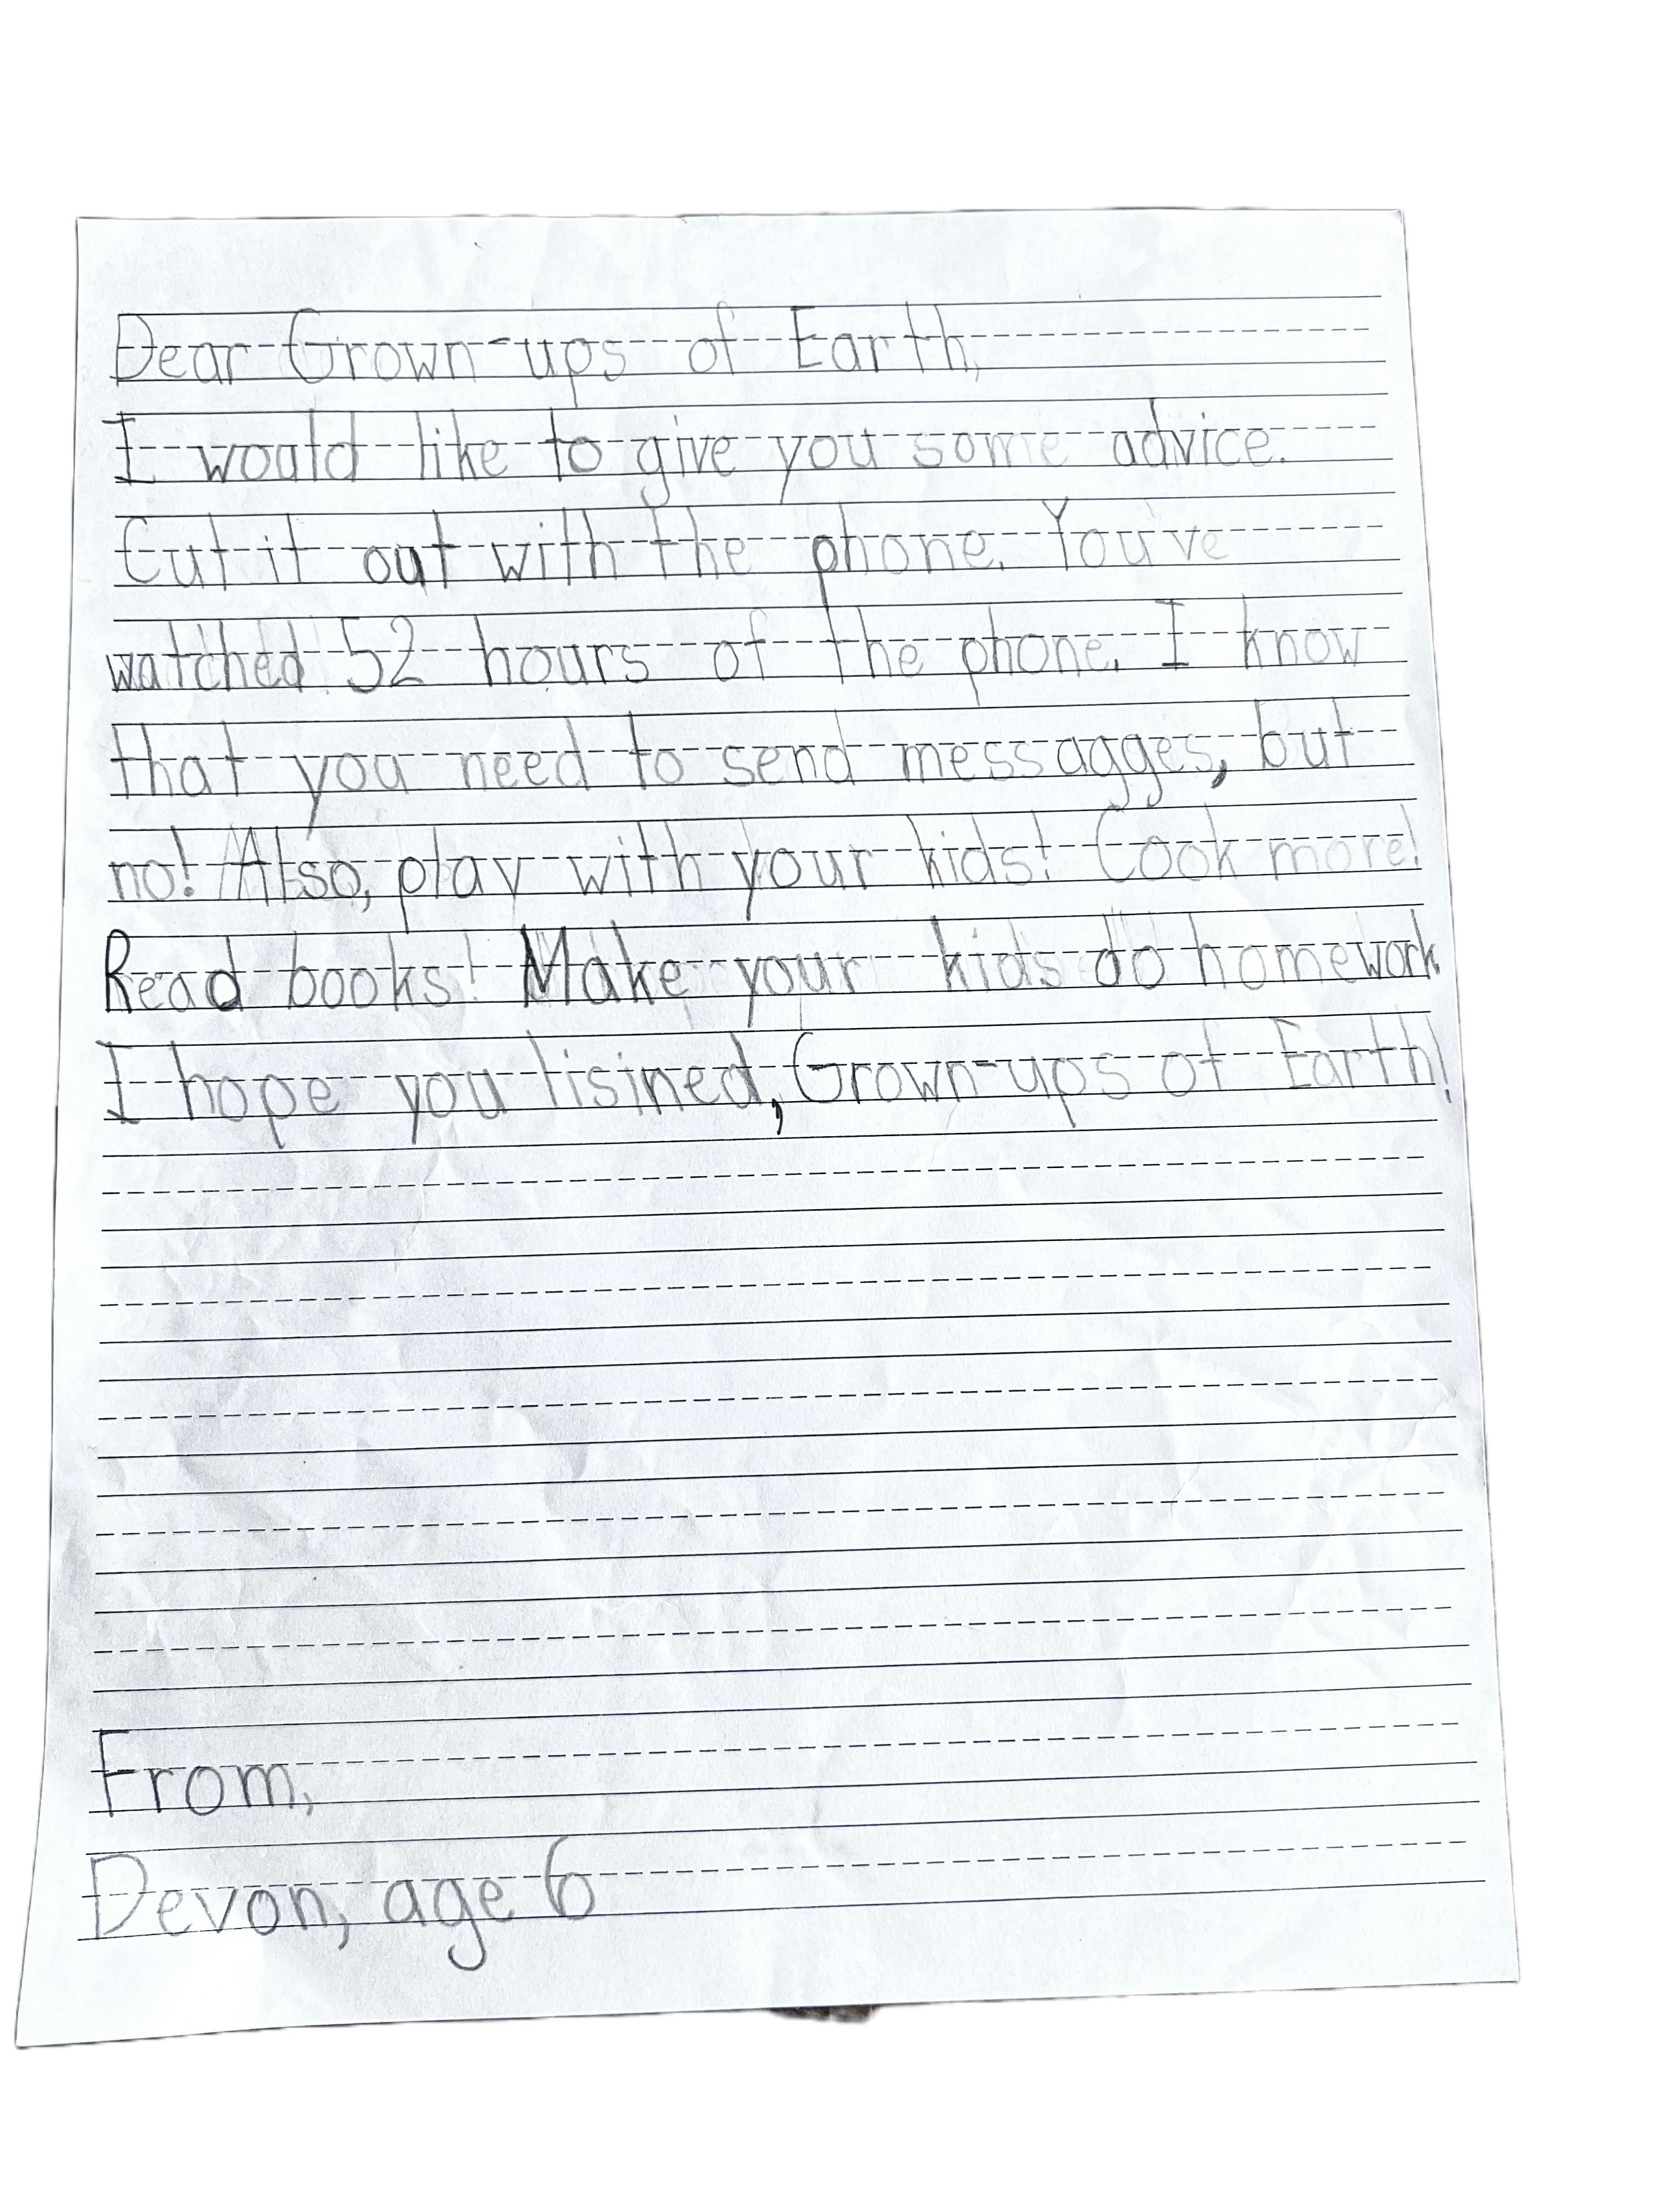 Dear Grown-ups of Earth,
I would like to give you some advice.
Cut it out with the phone. You've
watched 52 hours of the phone. I know
that you need to send messagges, but
no! Also, play with your kids! Cook more!
Read books! Make your kids do homework
I hope you lisined, Grown-ups of Earth!
From,
Devon, age 6